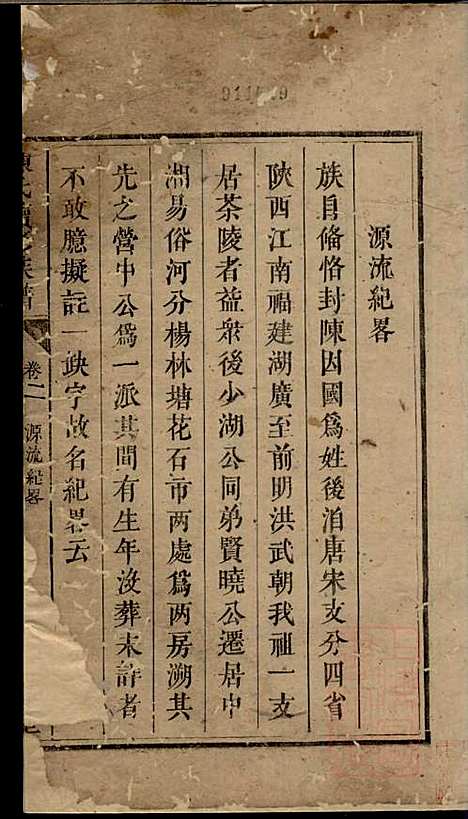 源流紀畧
族自備恪封陳因國爲姓後洎唐宋支分四省
陜西江南福建湖廣至前明洪武朝我祖一支
居茶陵者益衆後少湖公同弟賢曉公遷居中
湘易俗河分楊林塘花石市两處爲两房溯其
先之營中公爲一派其間有生年没葬未詳者
不敢臆擬註一缺字故名紀畧云
氏 族譜
卷二
源流紀畧